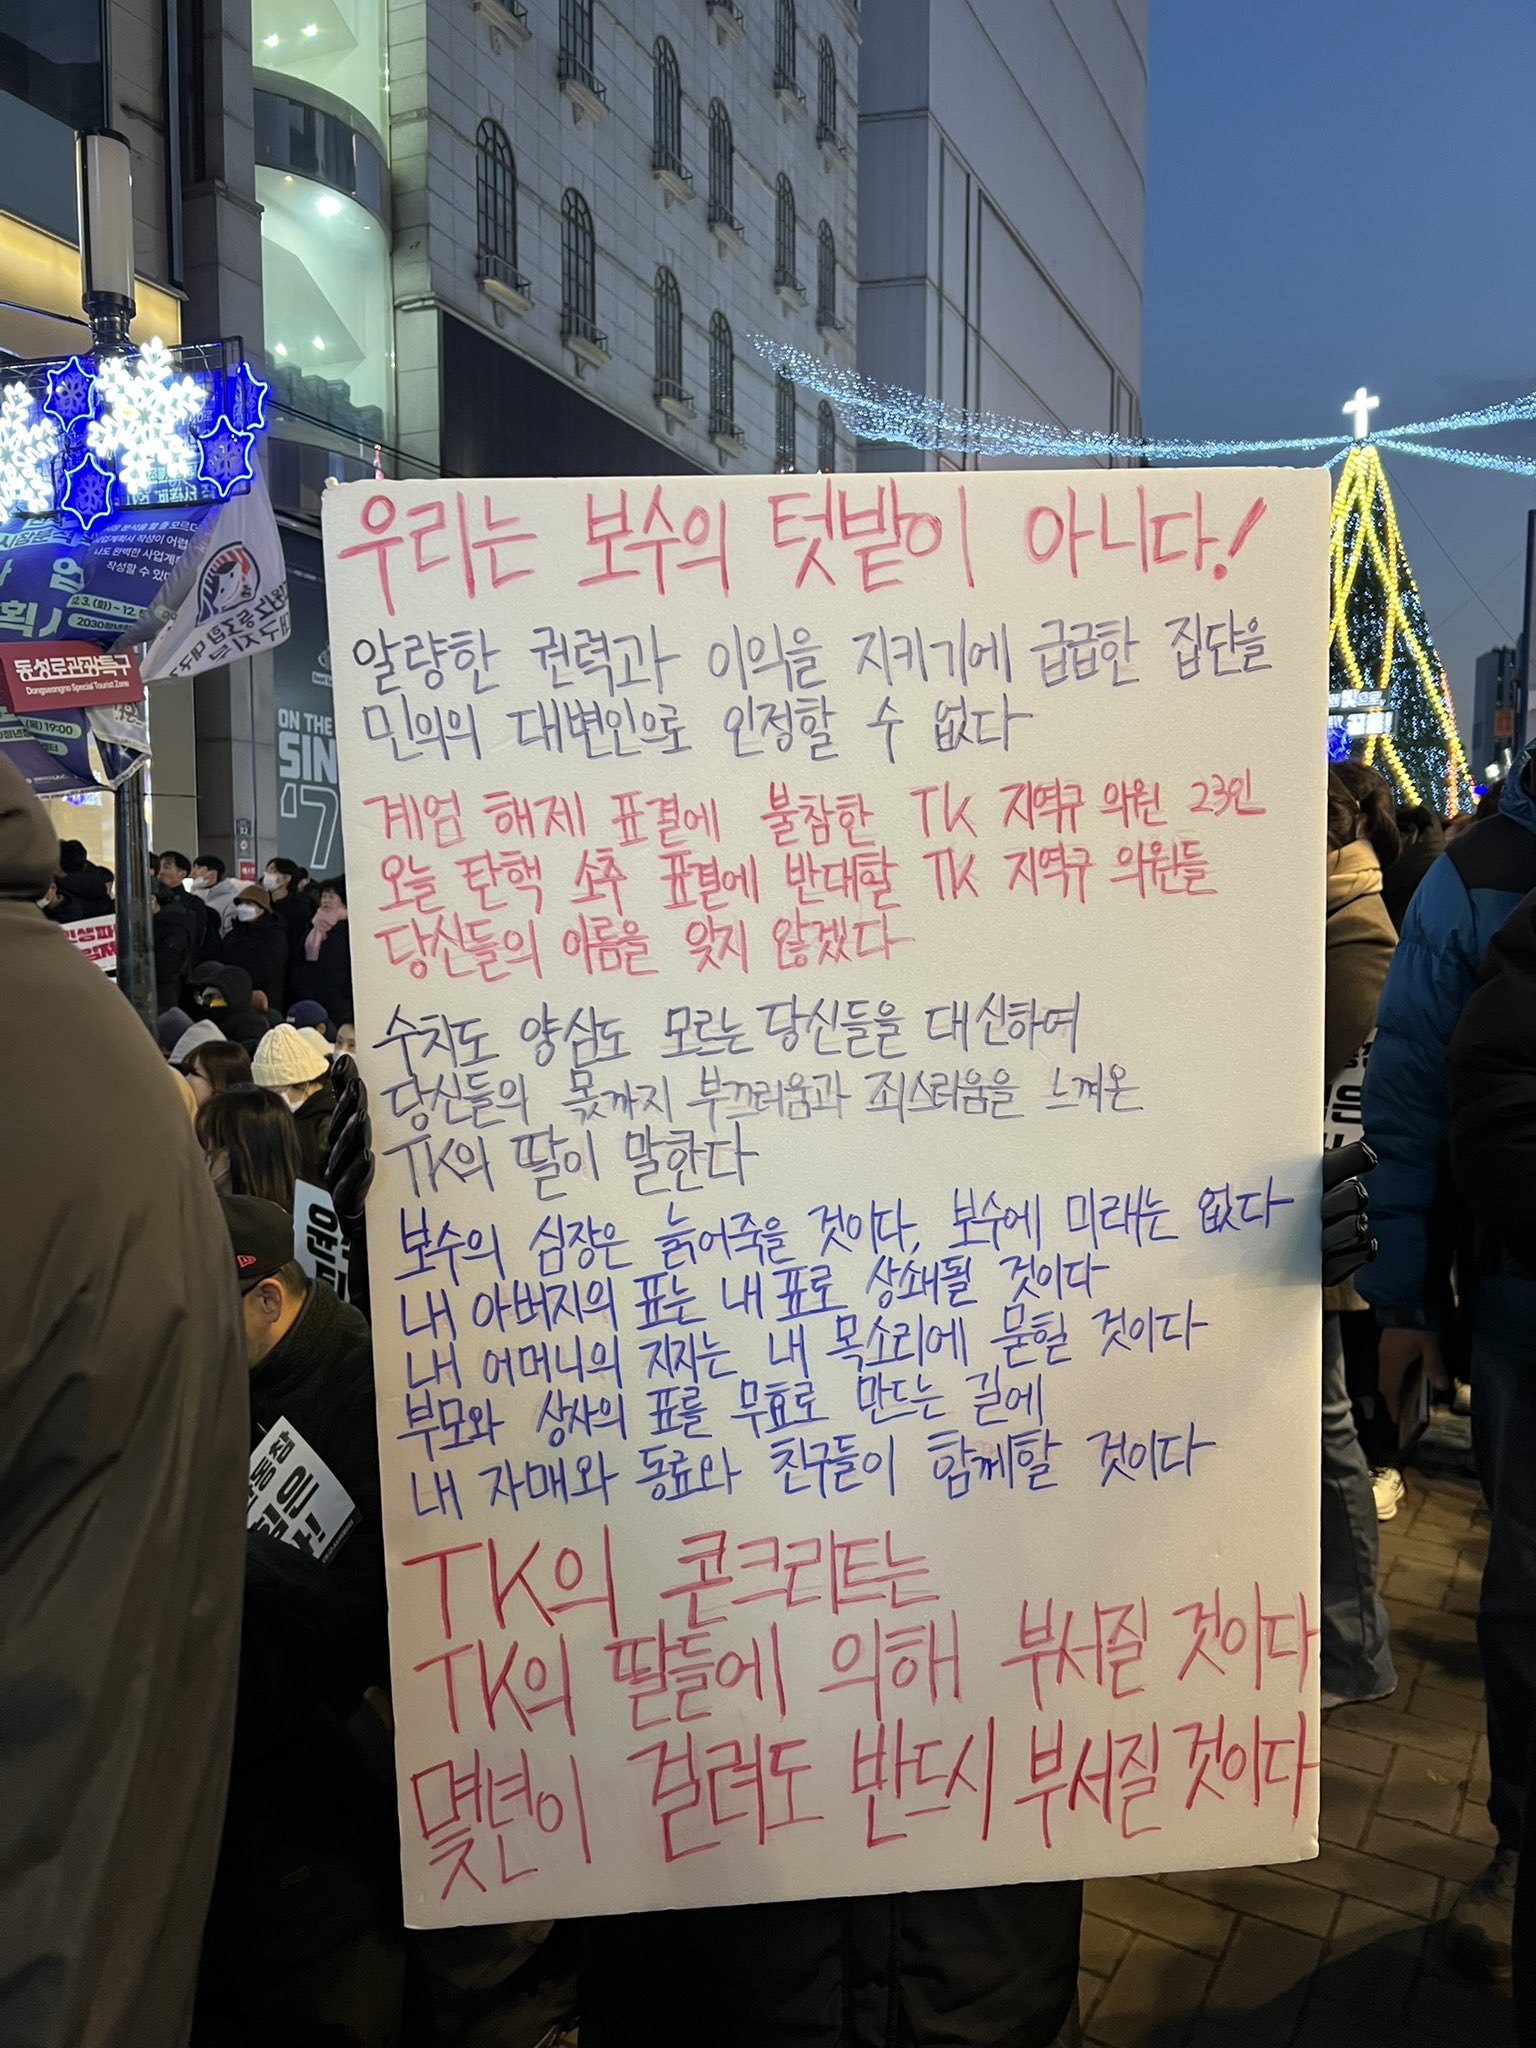 우리는 보수의 텃밭이 아니다!
알량한 권력과 이익을 지키기에 급급한 집단을
민의의 대변인으로 인정할 수 없다
계엄 해제 표결에 불참한 TK 지역구 의원 23인
오늘 탄핵 소추 표결에 반대할 TK 지역구 의원들
당신들의 이름을 잊지 않겠다
수치도 양심도 모르는 당신들을 대신하여
당신들의 몫까지 부끄러움과 죄스러움을 느껴온
TK의 딸이 말한다
보수의 심장은 늙어죽을 것이다, 보수에 미래는 없다
내 아버지의 표는 내 표로 상쇄될 것이다
내 어머니의 지지는 내 목소리에 묻힐 것이다
부모와 상사의 표를 무효로 만드는 길에
내 자매와 동료와 친구들이 함께할 것이다
TK의 콘크리트는
TK의 딸들에 의해 부서질 것이다
몇년이 걸려도 반드시 부서질 것이다
동성로관광특구
Dongseongno Special Tourist Zone
나도 완벽한 사업계
작성할 수 있다
3.(화)~12.5
2030청년창
(목) 19:00
ON THE
SIN
'7